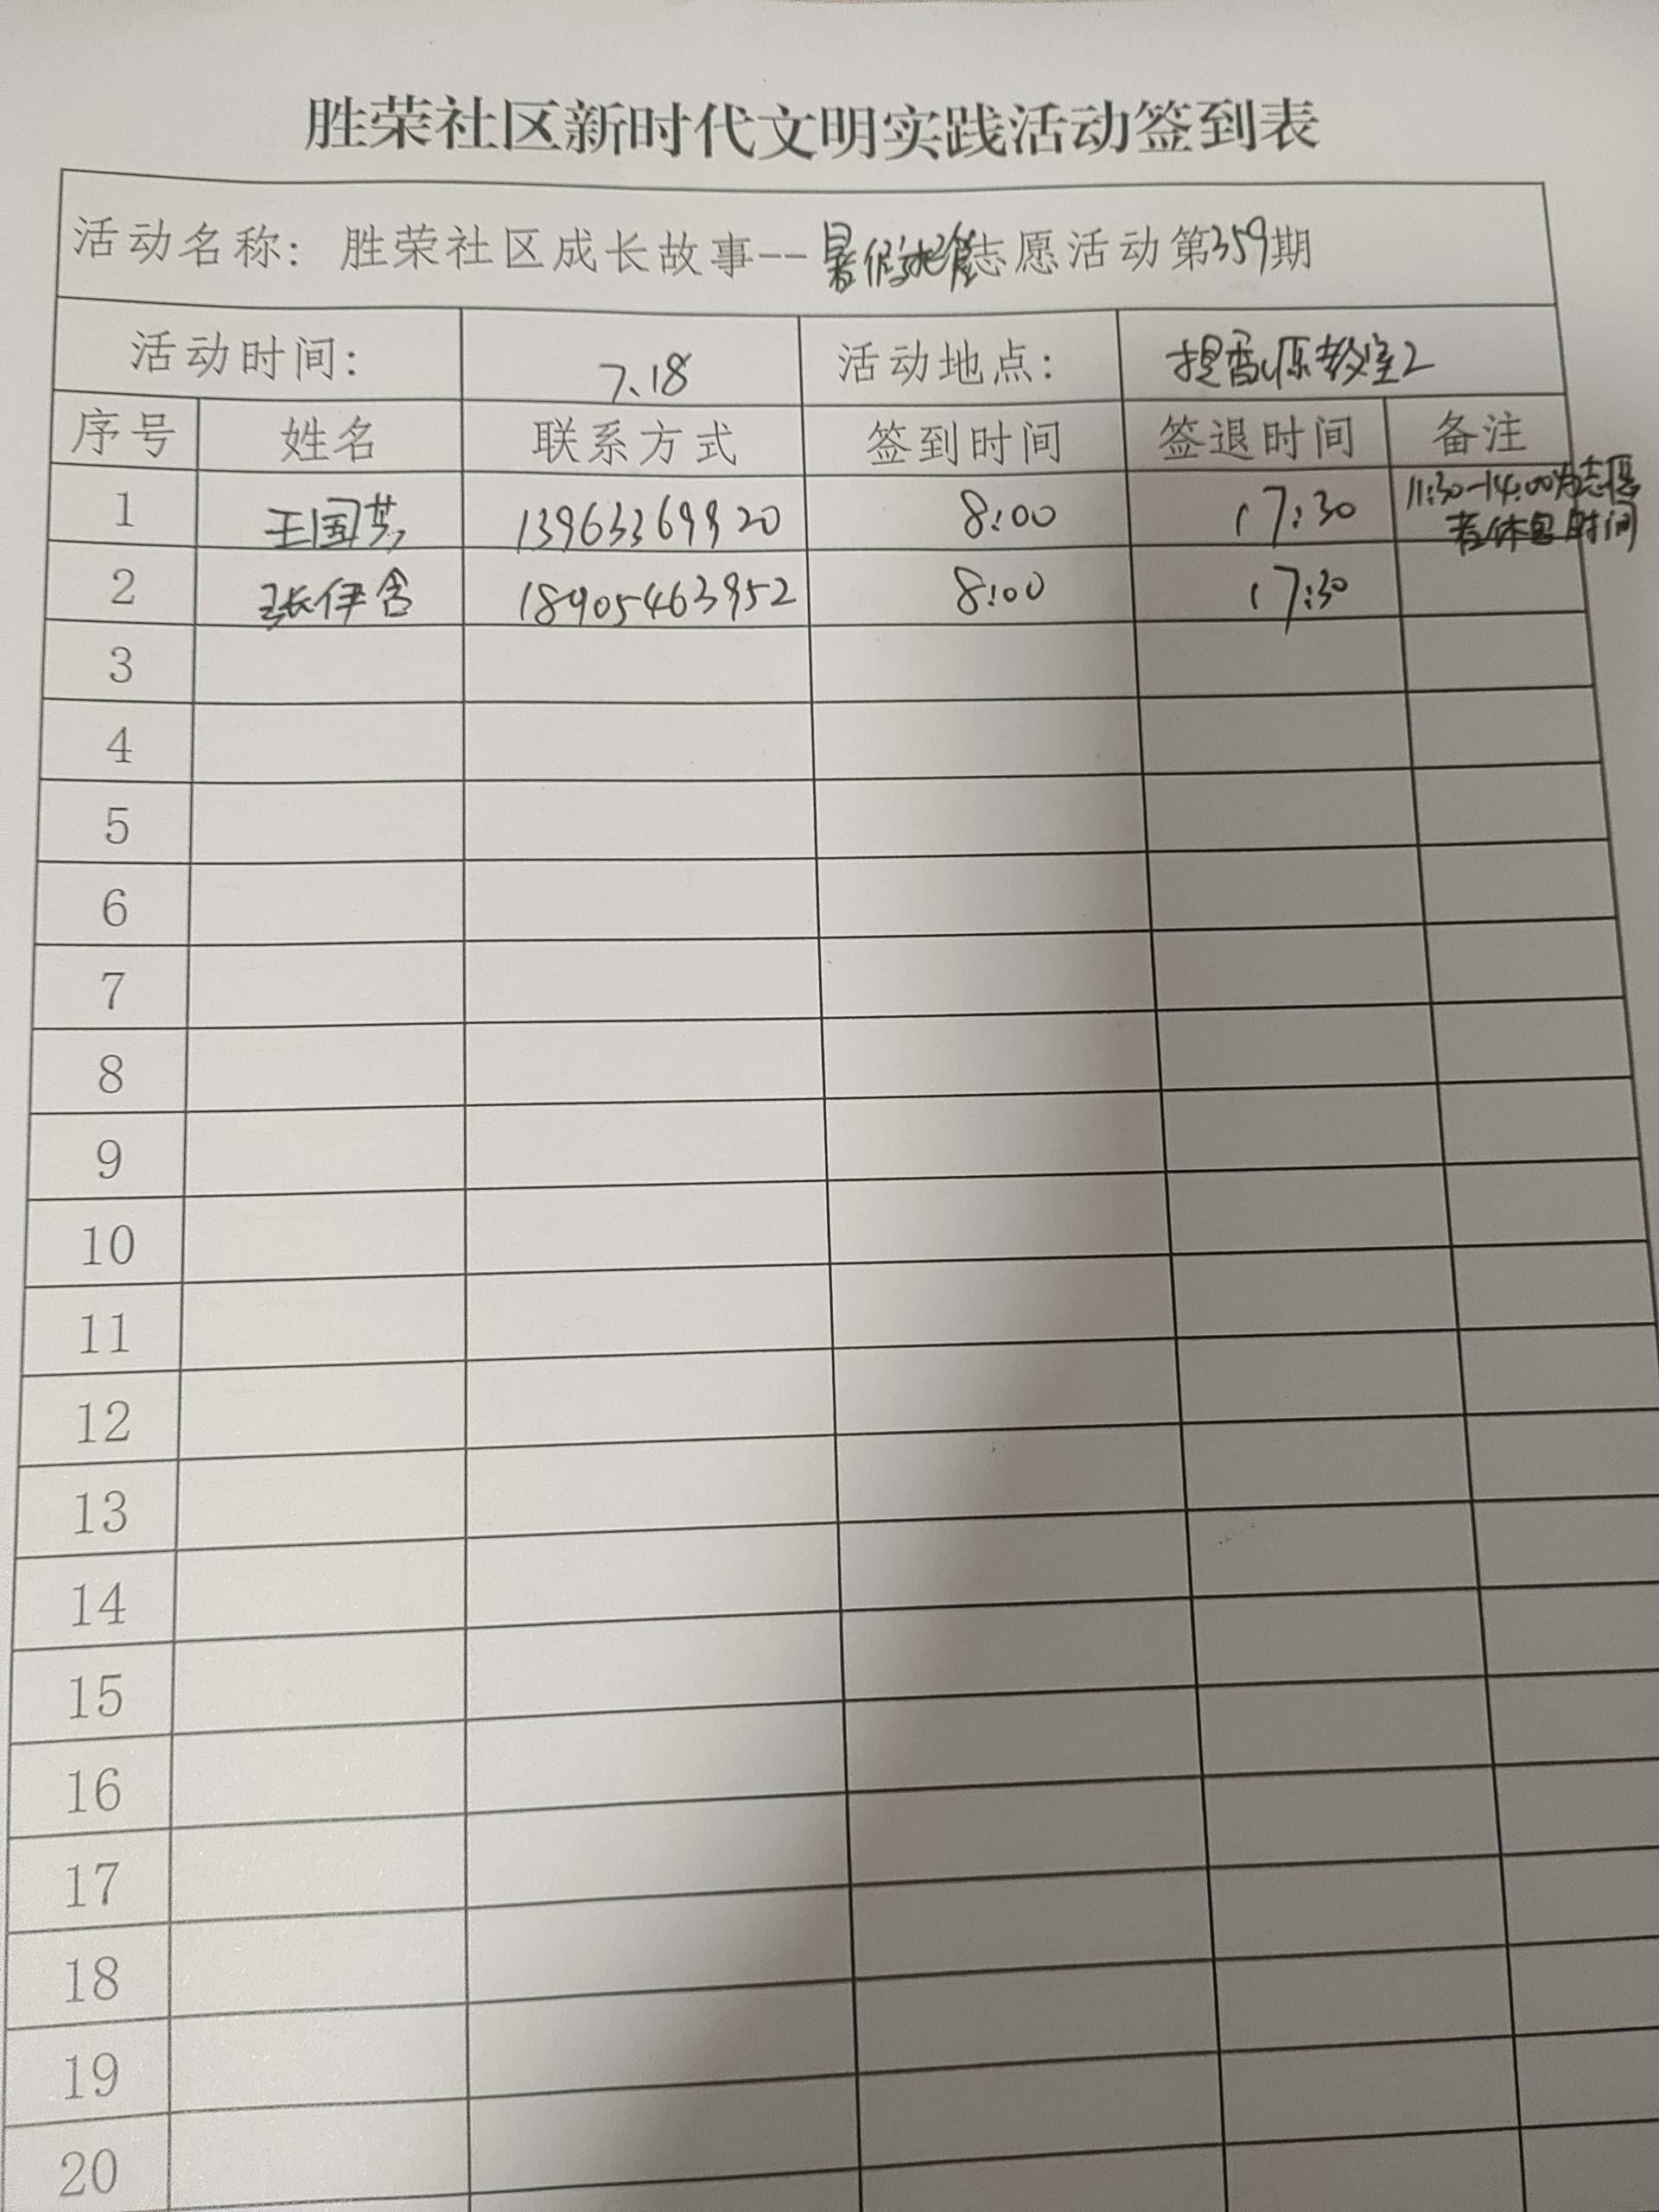 胜荣社区新时代文明实践活动签到表
活动名称：胜荣社区成长故事--暑假志愿活动第359期
活动时间： 7.18 活动地点： 提香原教室2
序号 姓名 联系方式 签到时间 签退时间 备注
1 王国芬 13963369920 8:00 17:30 11:30-14:00为志愿
者休息时间
2 张伊含 18905463952 8:00 17:30
3
4
5
6
7
8
9
10
11
12
13
14
15
16
17
18
19
20